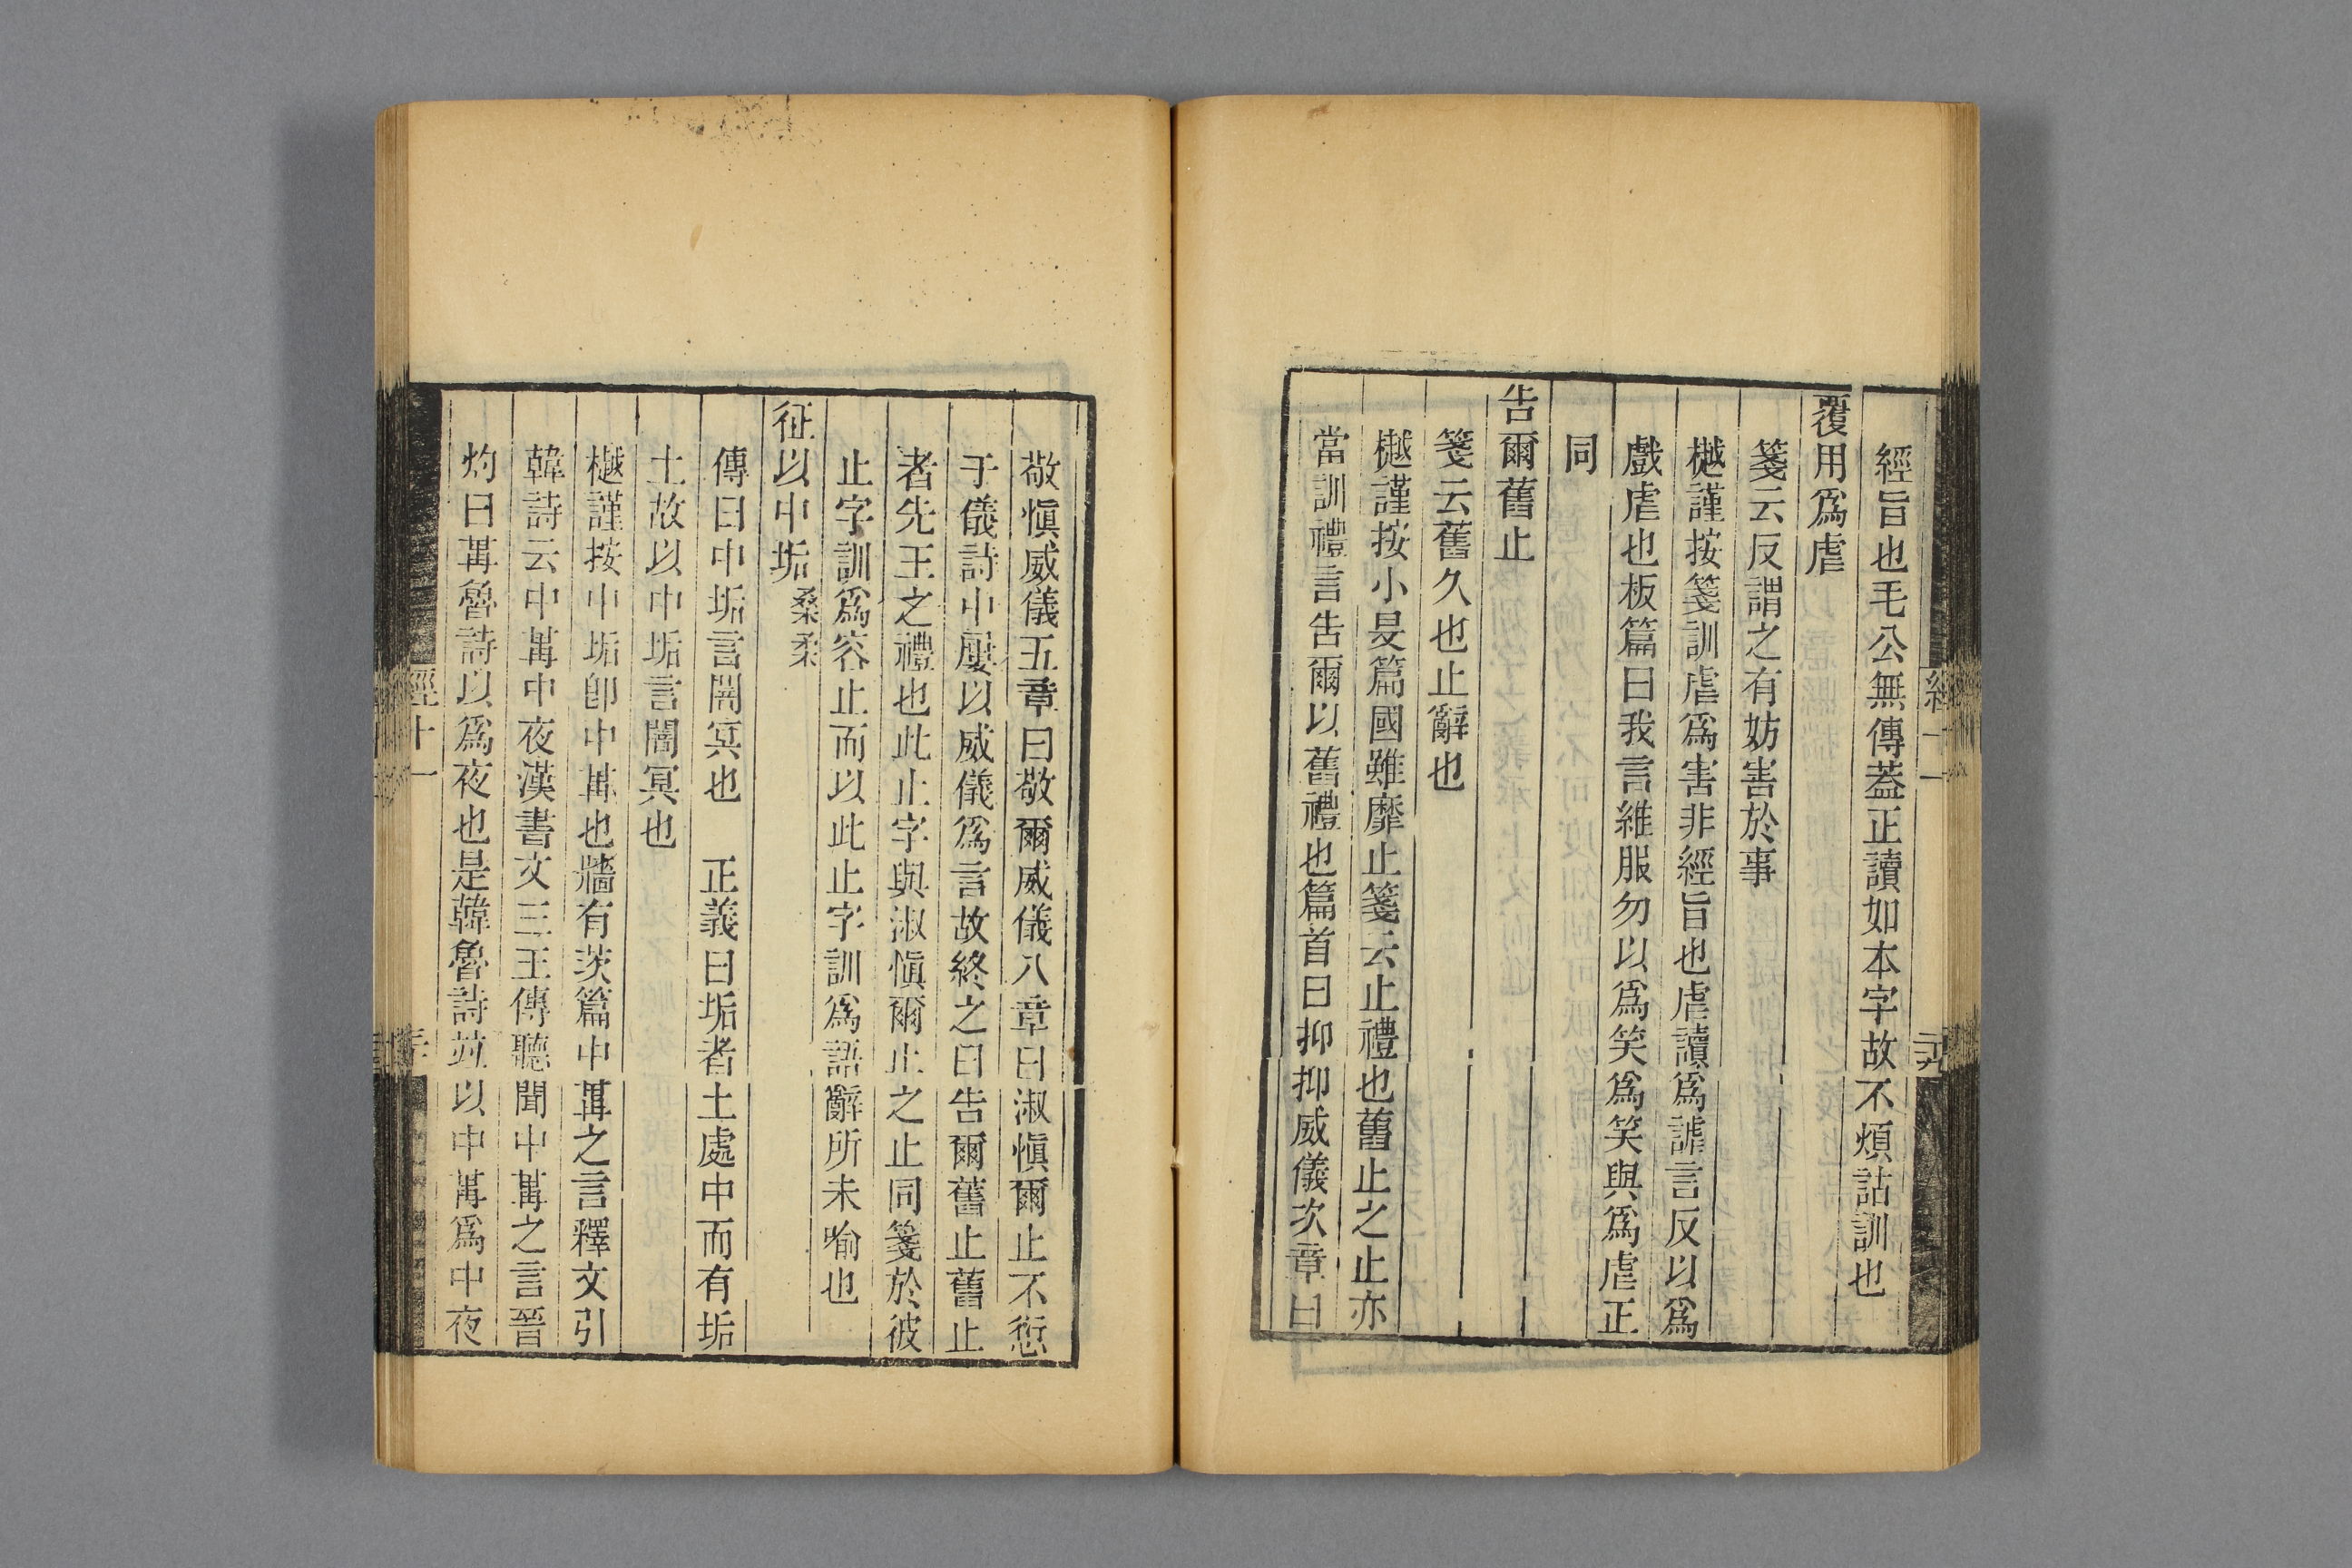 經旨也毛公無傳蓋正讀如本字故不煩詁訓也
覆用爲虐
箋云反謂之有妨害於事
樾謹按箋訓虐爲害非經旨也虐讀爲謔言反以爲
戲虐也板篇曰我言維服勿以爲笑爲笑與爲虐正
同
告爾舊止
箋云舊久也止辭也
樾謹按小旻篇國雖靡止箋云止禮也舊止之止亦
當訓禮言告爾以舊禮也篇首曰抑抑威儀次章曰
敬愼威儀五章曰敬爾威儀八章曰淑愼爾止不愆
于儀詩中屢以威儀爲言故終之曰告爾舊止舊止
者先王之禮也此止字與淑愼爾止之止同箋於彼
止字訓爲容止而以此止字訓爲語辭所未喻也
征以中垢桑柔
傳曰中垢言闇冥也　正義曰垢者土處中而有垢
土故以中垢言闇冥也
樾謹按中垢卽中冓也牆有茨篇中冓之言釋文引
韓詩云中冓中夜漢書文三王傳聽聞中冓之言晉
灼曰冓魯詩以爲夜也是韓魯詩竝以中冓爲中夜
經十一